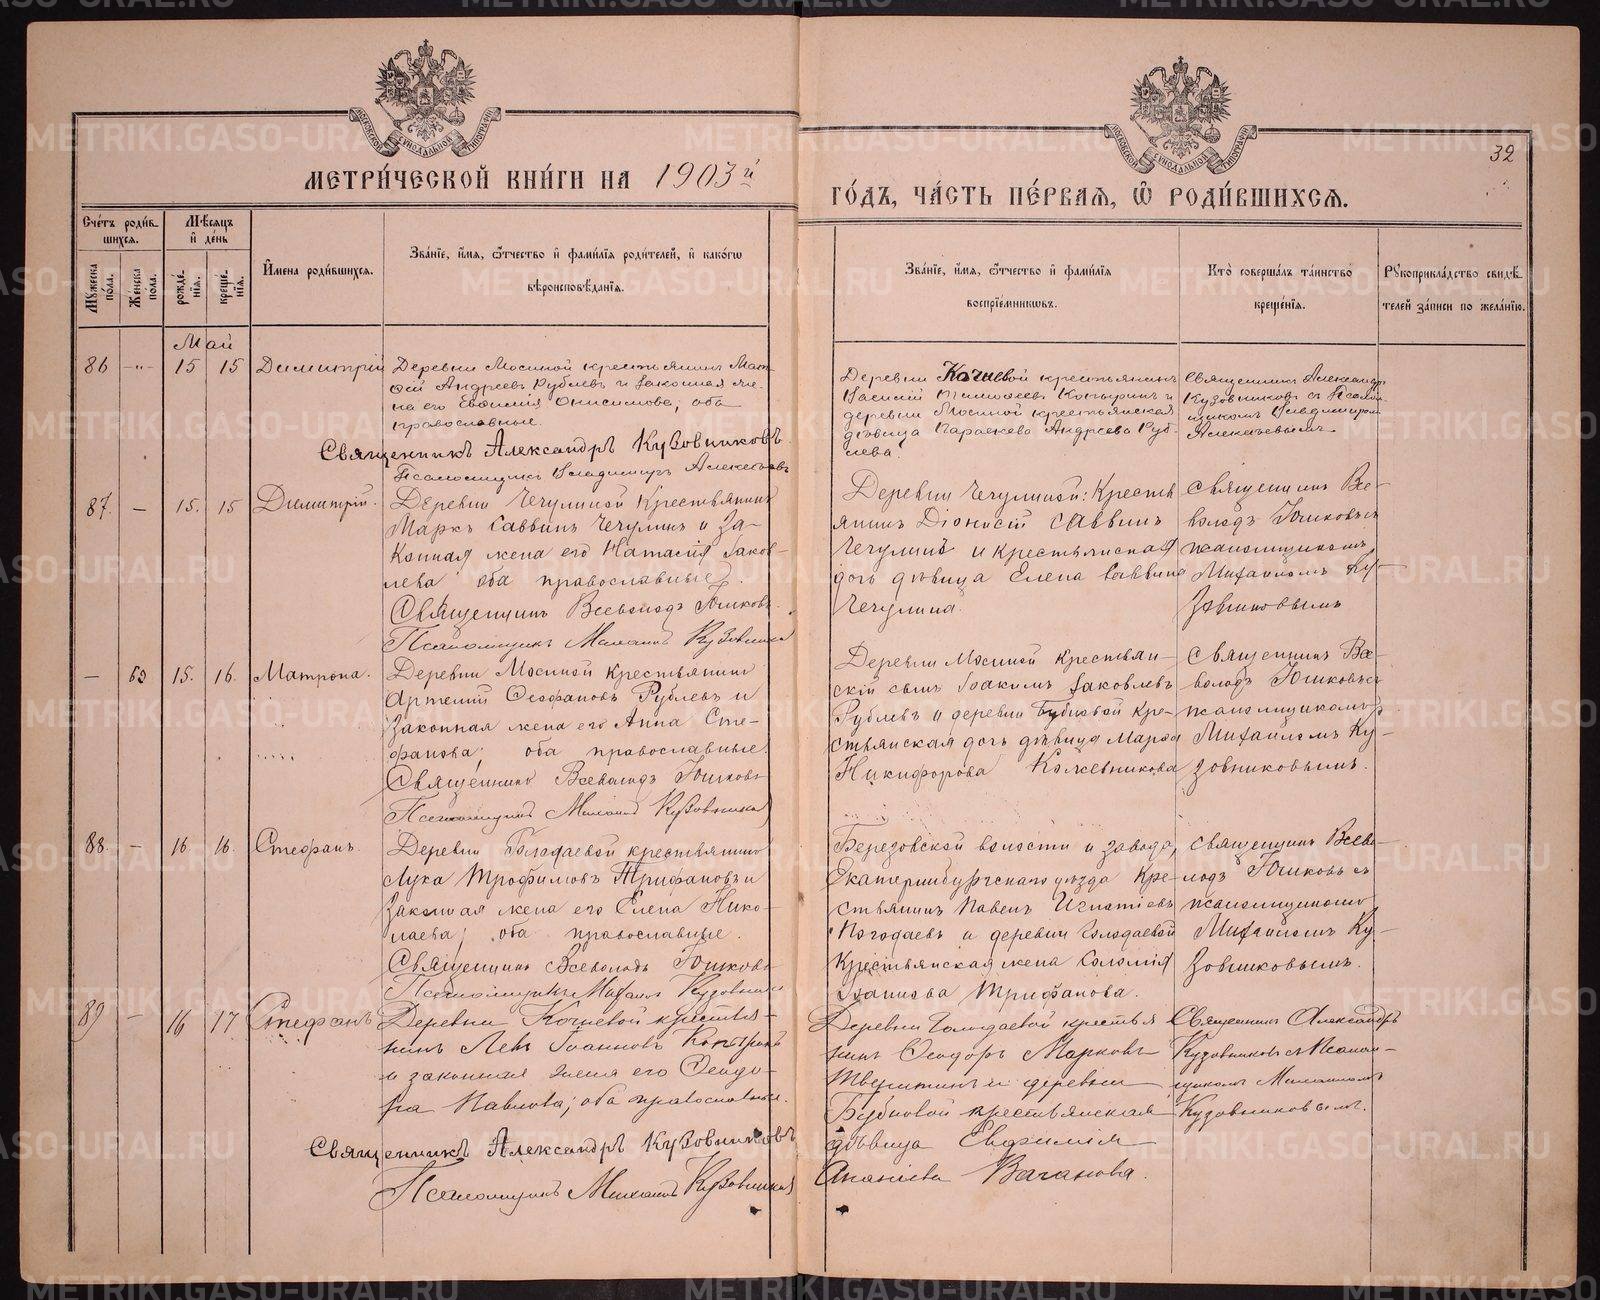 МЕТРИ́ЧЕСКОЙ КНИ́ГИ НА 1903 й
ГО́ДЪ, ЧА́СТЬ ПЕ́РВАЯ, Ѽ РОДИ́ВШИХСЯ.
32
Сче́тъ роди́в-
шихся.
Мѣ́сяцъ
и де́нь
Мꙋжеска по́ла.
Же́нска по́ла.
рожде́-
нїя.
креще́-
нїя.
И́мена роди́вшихся.
Зва́нїе, и́мя, ѻ́тчество и фами́лїя роди́телей, и како́гѡ
вѣроисповѣ́данїя.
Зва́нїе, и́мя, ѻ́тчество и фами́лїя
воспрїе́мникѡвъ.
Кто̀ соверша́лъ та́инство
креще́нїя.
Рꙋкоприкла́дство свидѣ́-
телей за́писи по жела́нїю.
Май
86 -"- 15 15 Димитрій
Деревни Мосиной крестьянинъ Мат-
ѳій Андреевъ Рублевъ и законная же-
на его Евѳимія Онисимова; оба
православные.
Священникъ Александръ Кузовниковъ.
Псаломщикъ Владимиръ Алексѣевъ
Деревни Кочневой крестьянинъ
Василій Тимоѳеевъ Копыринъ и
деревни Мосиной крестьянская
дѣвица Параскева Андреева Руб-
лева.
Священникъ Александръ
Кузовниковъ съ Псалом-
щикомъ Владимиром
Алексѣевымъ
87. — 15. 15 Димитрій.
Деревни Чечулиной Крестьянинъ
Маркъ Саввинъ Чечулинъ и За-
конная жена его Наталія Іаков-
лева оба православные.
Священникъ Всеволодъ Юшковъ.
Псаломщикъ Михаилъ Кузовников
Деревни Чечулиной: Кресть
янинъ Діонисій Саввинъ
Чечулинъ и крестьянская
дочь дѣвица Елена Саввина
Чечулина.
Священникъ Все-
володъ Юшковъ съ
псаломщикомъ
Михаиломъ Ку-
зовниковымъ
— 63 15. 16. Матрона.
Деревни Мосиной крестьянинъ
Артемій Ѳеофановъ Рублевъ и
Законная жена его Анна Сте-
фанова; оба православные.
Священникъ Всеволодъ Юшковъ
Псаломщикъ Михаилъ Кузовников
Деревни Мосиной крестьян-
скій сынъ Іоакимъ Іаковлевъ
Рублевъ и деревни Бубновой кре-
стьянская дочь дѣвица Марѳа
Никифорова Кожевникова
Священникъ Все-
володъ Юшковъ съ
псаломщикомъ
Михаиломъ Ку-
зовниковымъ.
88. — 16 16. Стефанъ.
Деревни Голодаевой крестьянинъ
Лука Трофимовъ Трифановъ и
Законная жена его Елена Нико-
лаева; оба православные.
Священникъ Всеволодъ Юшковъ
Псаломщикъ Михаилъ Кузовников
Березовской волости и завода,
Екатеринбургскаго уѣзда Кре-
стьянинъ Павелъ Игнатіевъ
Погодаевъ и деревни Голодаевой
Крестьянская жена Соломія
Іоаннова Трифанова.
Священникъ Всево-
лодъ Юшковъ съ
псаломщикомъ
Михаиломъ Ку-
зовниковымъ.
89 — 16 17 Стефанъ
Деревни Кочневой крестья-
нинъ Левъ Іоанновъ Копыринъ
и законная жена его Ѳеодо-
ра Павлова; оба православные.
Священникъ Александръ Кузовниковъ
Псаломщикъ Михаилъ Кузовников
Деревни Голодаевой крестья
нинъ Ѳеодоръ Марковъ
Тверитинъ и деревни
Бубновой крестьянская
дѣвица Евфимія
Ананіева Ваганова.
Священникъ Александръ
Кузовниковъ съ Псалом-
щикомъ Михаиломъ
Кузовниковымъ.
METRIKI.GASO-URAL.RU